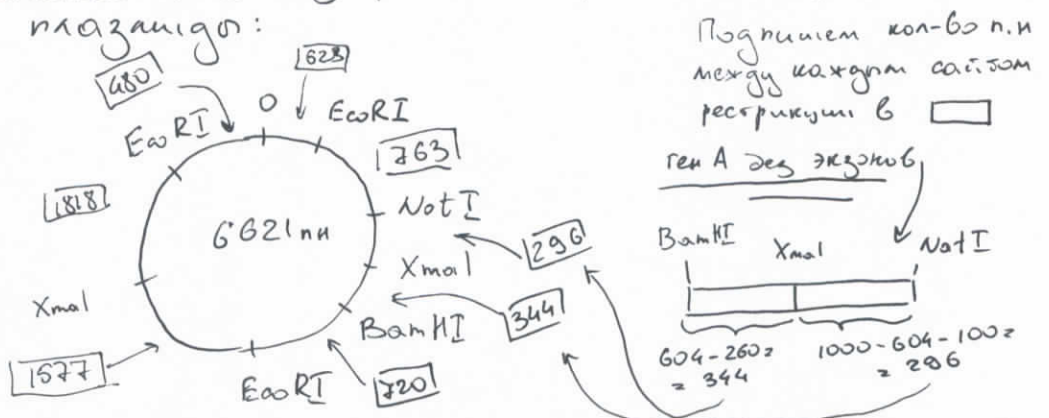 плазмиды:
480
628
0
EcoRI
EcoRI
763
1818
6621 пн
NotI
296
XmaI
XmaI
344
BamHI
1577
EcoRI
720
Подпишем кол-во п.н
между каждым сайтом
рестрикции в
ген А без экзонов
BamHI
XmaI
NotI
604-260=
= 344
1000-604-100=
= 296